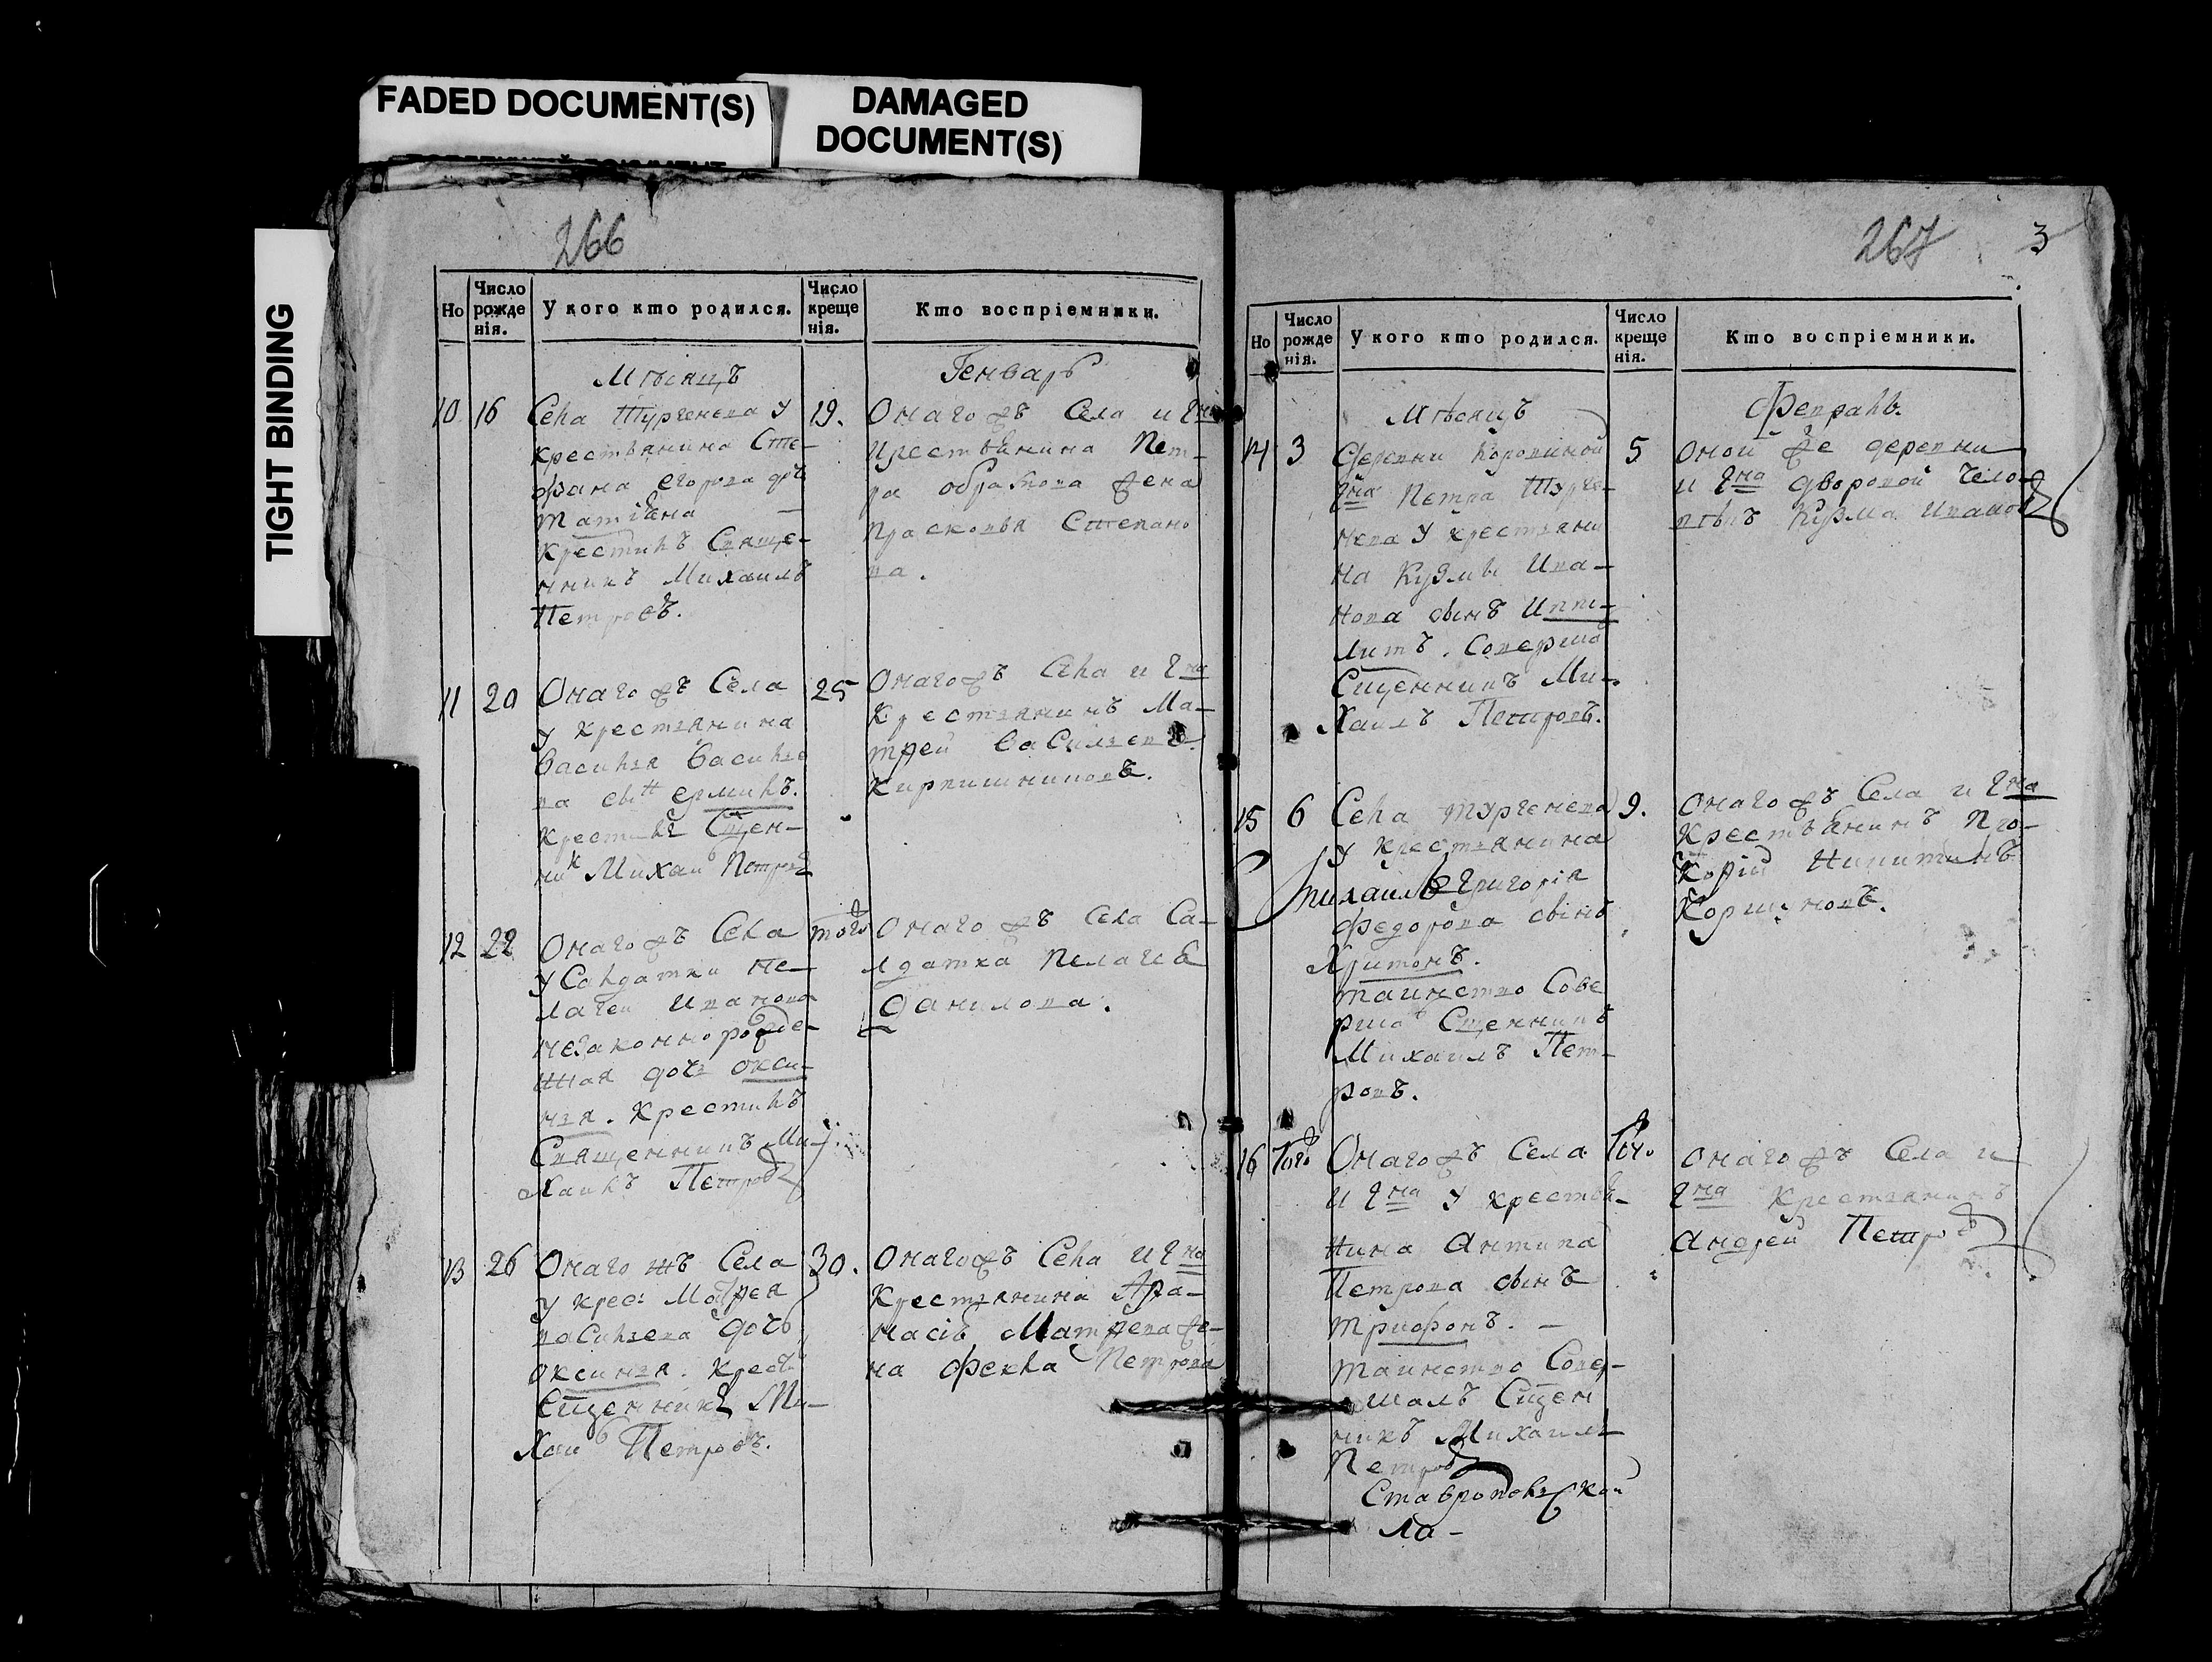 FADED DOCUMENT(S)
DAMAGED
DOCUMENT(S)
TIGHT BINDING
266
Но
Число рожде нія.
У кого кто родился.
Число креще нія.
Кто воспріемники.
Мѣсяцъ
Генварь
10
16
Села Тургенева У
крестьянина Сте-
фана Егорова дочь
Татіана
Крестилъ Свяще-
нникъ Михаилъ
Петровъ.
19.
Онаго жъ Села и Гна
крестьянина Пет-
ра жена
Прасковья Степано
ва.
11
20
Онаго жъ Села
У крестьянина
Василья Василье
ва сынъ Ермилъ.
Крестилъ Сщен-
ник Михаи Петровъ
25
Онаго жъ Села и Гна
Крестьянинъ Ма-
твей Васильевъ
Кирпишниковъ.
12
22
Онаго жъ Села
У Салдатки Пе-
лагеи Иванова
незаконнорожде-
нная дочь Окси-
нья. Крестилъ
Священникъ Ми-
хаилъ Петровъ
того
Онаго жъ Села Са-
лдатка Пелагея
Данилова.
13
26
Онаго жъ Села
У крес: Матвея
Васильева дочь
Оксинья. Крести
Сщенникъ Ми-
хаи Петровъ.
30.
Онаго жъ Села и Гна
Крестьянина Афа-
насія Матвеева же-
на Фекла Петрова
267
3
Но
Число рожде нія.
У кого кто родился.
Число креще нія.
Кто воспріемники.
Мѣсяцъ
Февраль.
14
3
Деревни Коровиной
Гна Петра Турге-
нева У крестьяни
на Кузмы Ива-
нова сынъ Иппо-
литъ. Соверша
Сщенникъ Ми-
хаилъ Петровъ.
5
Оной же деревни
и Гна дворовой чело-
вѣкъ Кузма Ивановъ
15
6
Села Тургенева
У крестьянина
Михаилъ Григорія
Федорова сынъ
Харитонъ.
Таинство Сове
рша Сщенникъ
Михаилъ Пет-
ровъ.
9.
Онаго жъ Села и Гна
Крестьянинъ Про-
кофій Никитинъ
16
Того
Онаго жъ Села
и Гна У крестья-
нина Антипа
Петрова сынъ
Трифонъ. -
Таинство Совер-
шалъ Сщен
никъ Михаилъ
Петровъ
Ставропольской
ла-
Того
Онаго жъ Села и
Гна Крестьянинъ
Андрей Петровъ